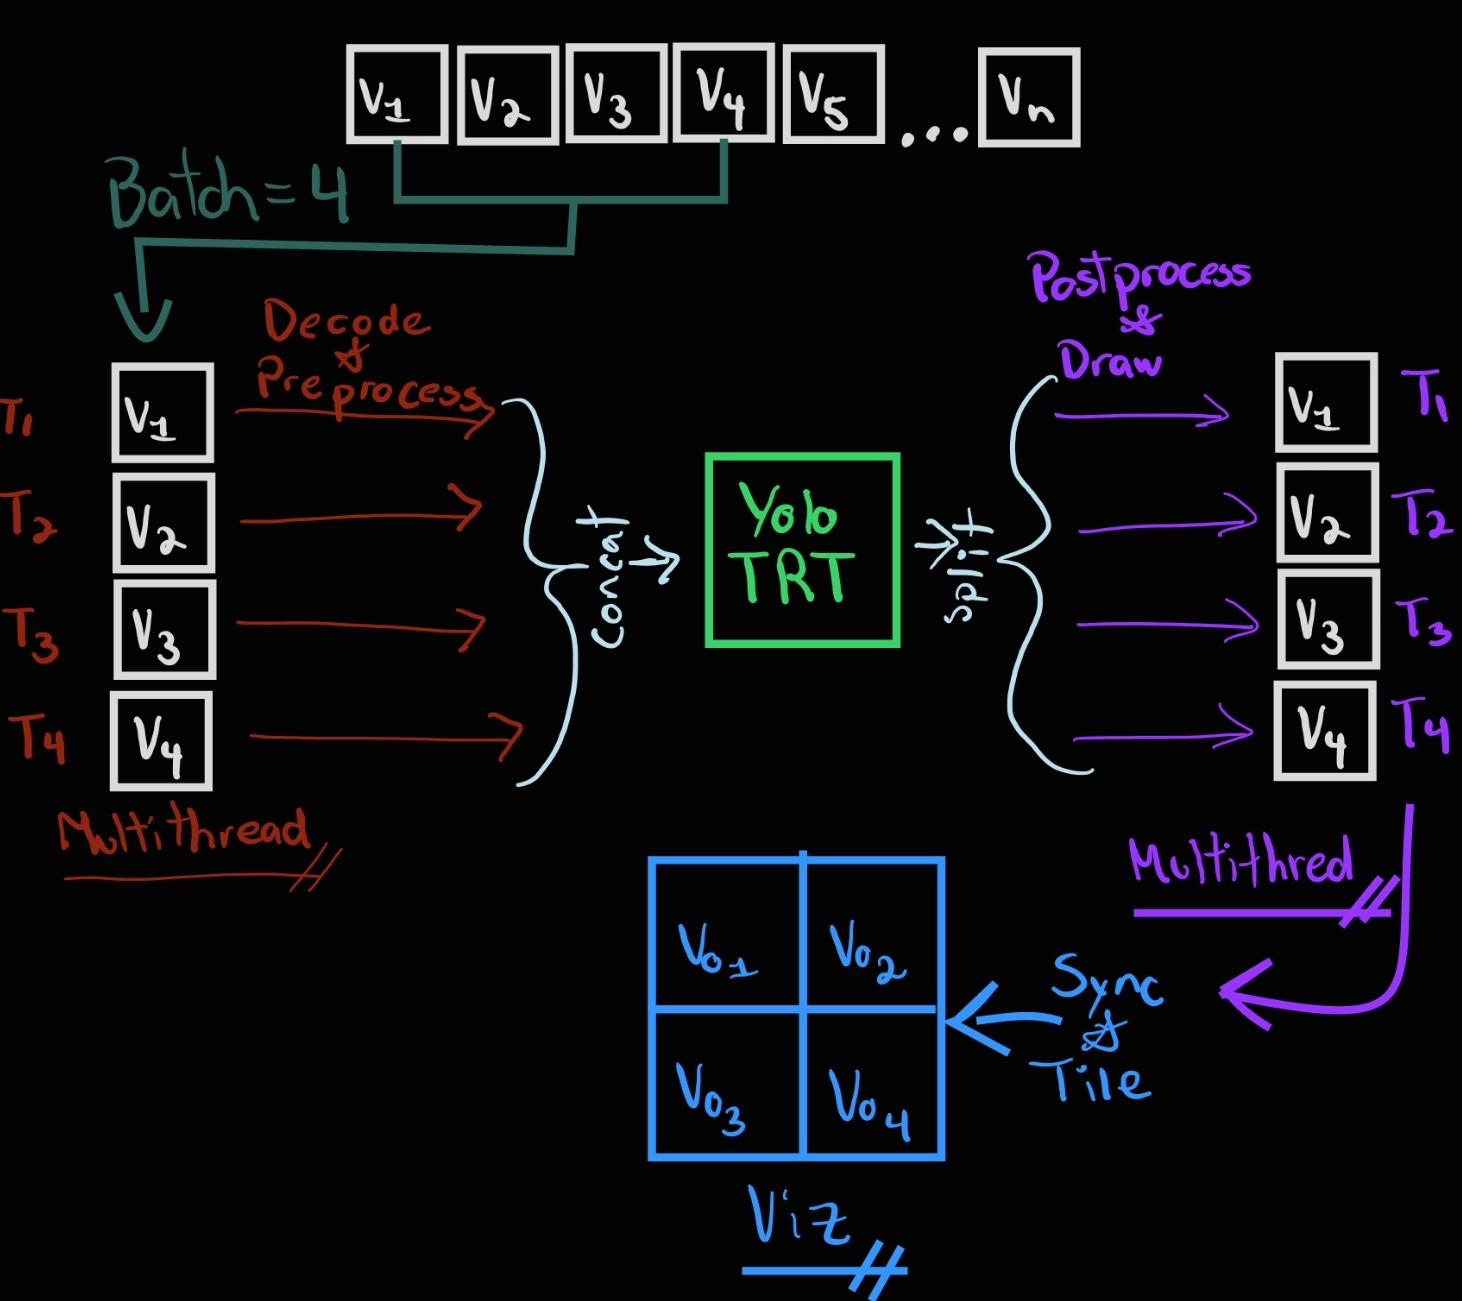 V1 V2 V3 V4 V5 ... Vn
Batch = 4
Decode
&
Preprocess
T1 V1
T2 V2
T3 V3
T4 V4
Multithread
Concat
Yolo
TRT
Split
Postprocess
&
Draw
V1 T1
V2 T2
V3 T3
V4 T4
Multithred
Sync
&
Tile
Vo1 Vo2
Vo3 Vo4
Viz